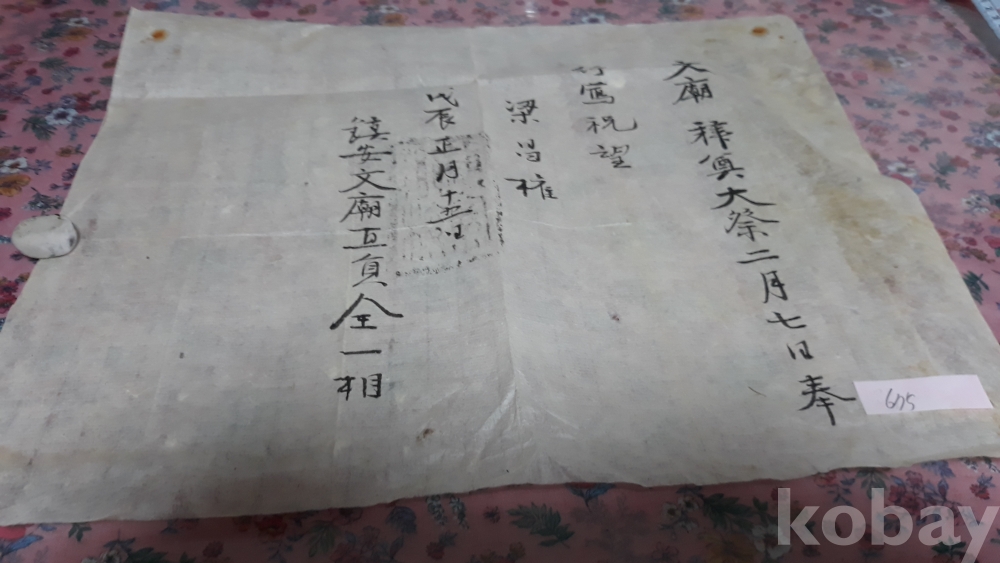 文廟 釋奠大祭二月七日奉
行寫祝望
梁昌權
戊辰正月十五日
鎭安文廟直員全一相
675
kobay